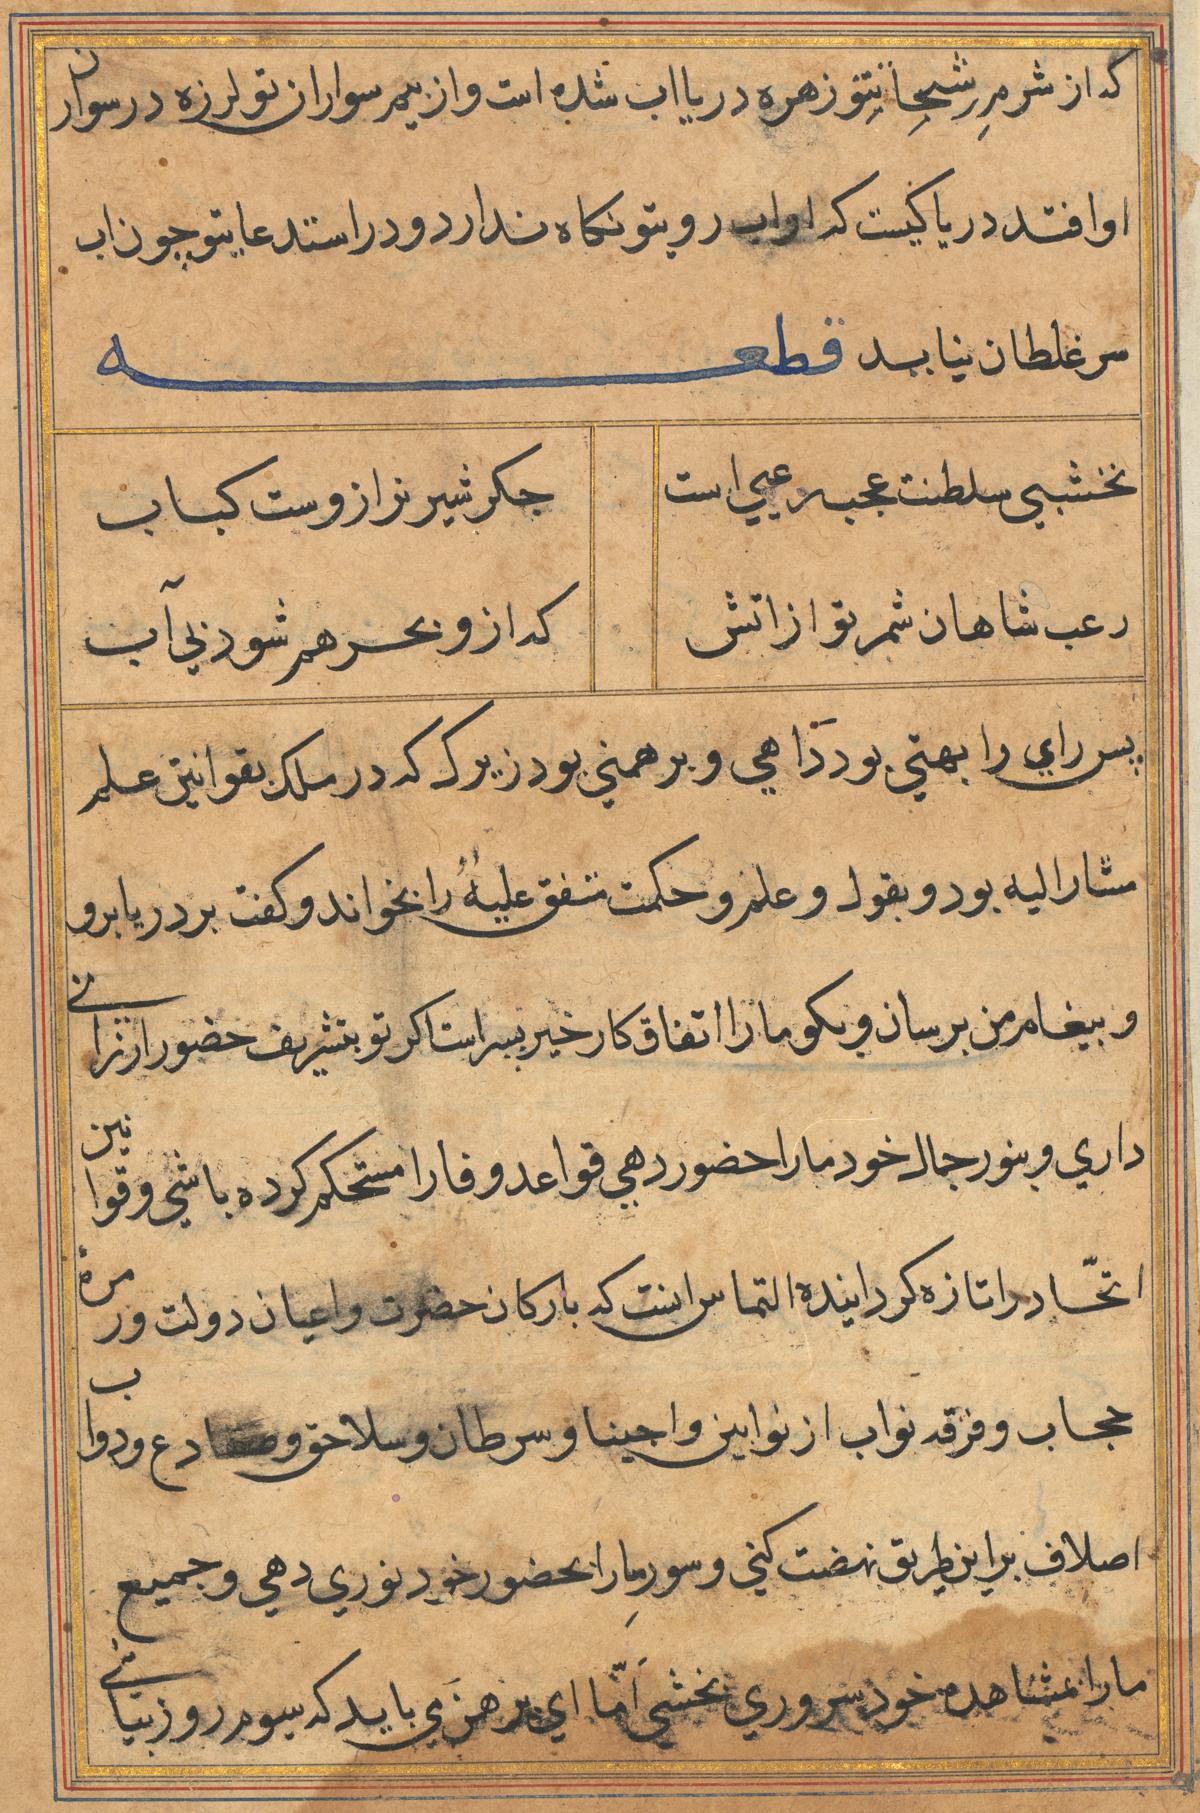 که از شرم رشحات تو زهره دریا اب شده است و از بیم سواران تو لرزه در سواران
او افتد دریا کیست که او اب روی تو نکاه ندارد و در استدعای تو چون اب
سر غلطان نیاید قطعه
نخشبی سلطنت عجب رعبی است
جکر شیر نر ازوست کباب
رعب شاهان شمر تو از اتش
که ازو بحر هم شود بی آب
پس رای را بهتی بود داهی و برهمنی بود زیرک که در ملک بقوانین علم
مشار الیه بود و بقول و علم و حکمت متفق علیه را بخواند و کفت بر دریا برو
و پیغام من برسان و بکو ما را اتفاق کار خیر پسر است اکر تو بتشریف حضور ارزانی
داری و بنور جمال خود ما را حضور دهی قواعد وفا را مستحکم کرده باشی و قوانین
اتحّاد را تازه کردانیده التماس اینست که با ارکان حضرت و اعیان دولت و زمرهٔ
حجاب و فرقه نواب از نوابین و احینا و سرطان و سلاحق و ضفادع و دواب
اصلاف براین طریق نهضت کنی و سور ما را بحضور خود نوری دهی و جمیع
ما را بمشاهده خود سروری بخشی امّا ای برهمن می باید که سوم روز بیائی